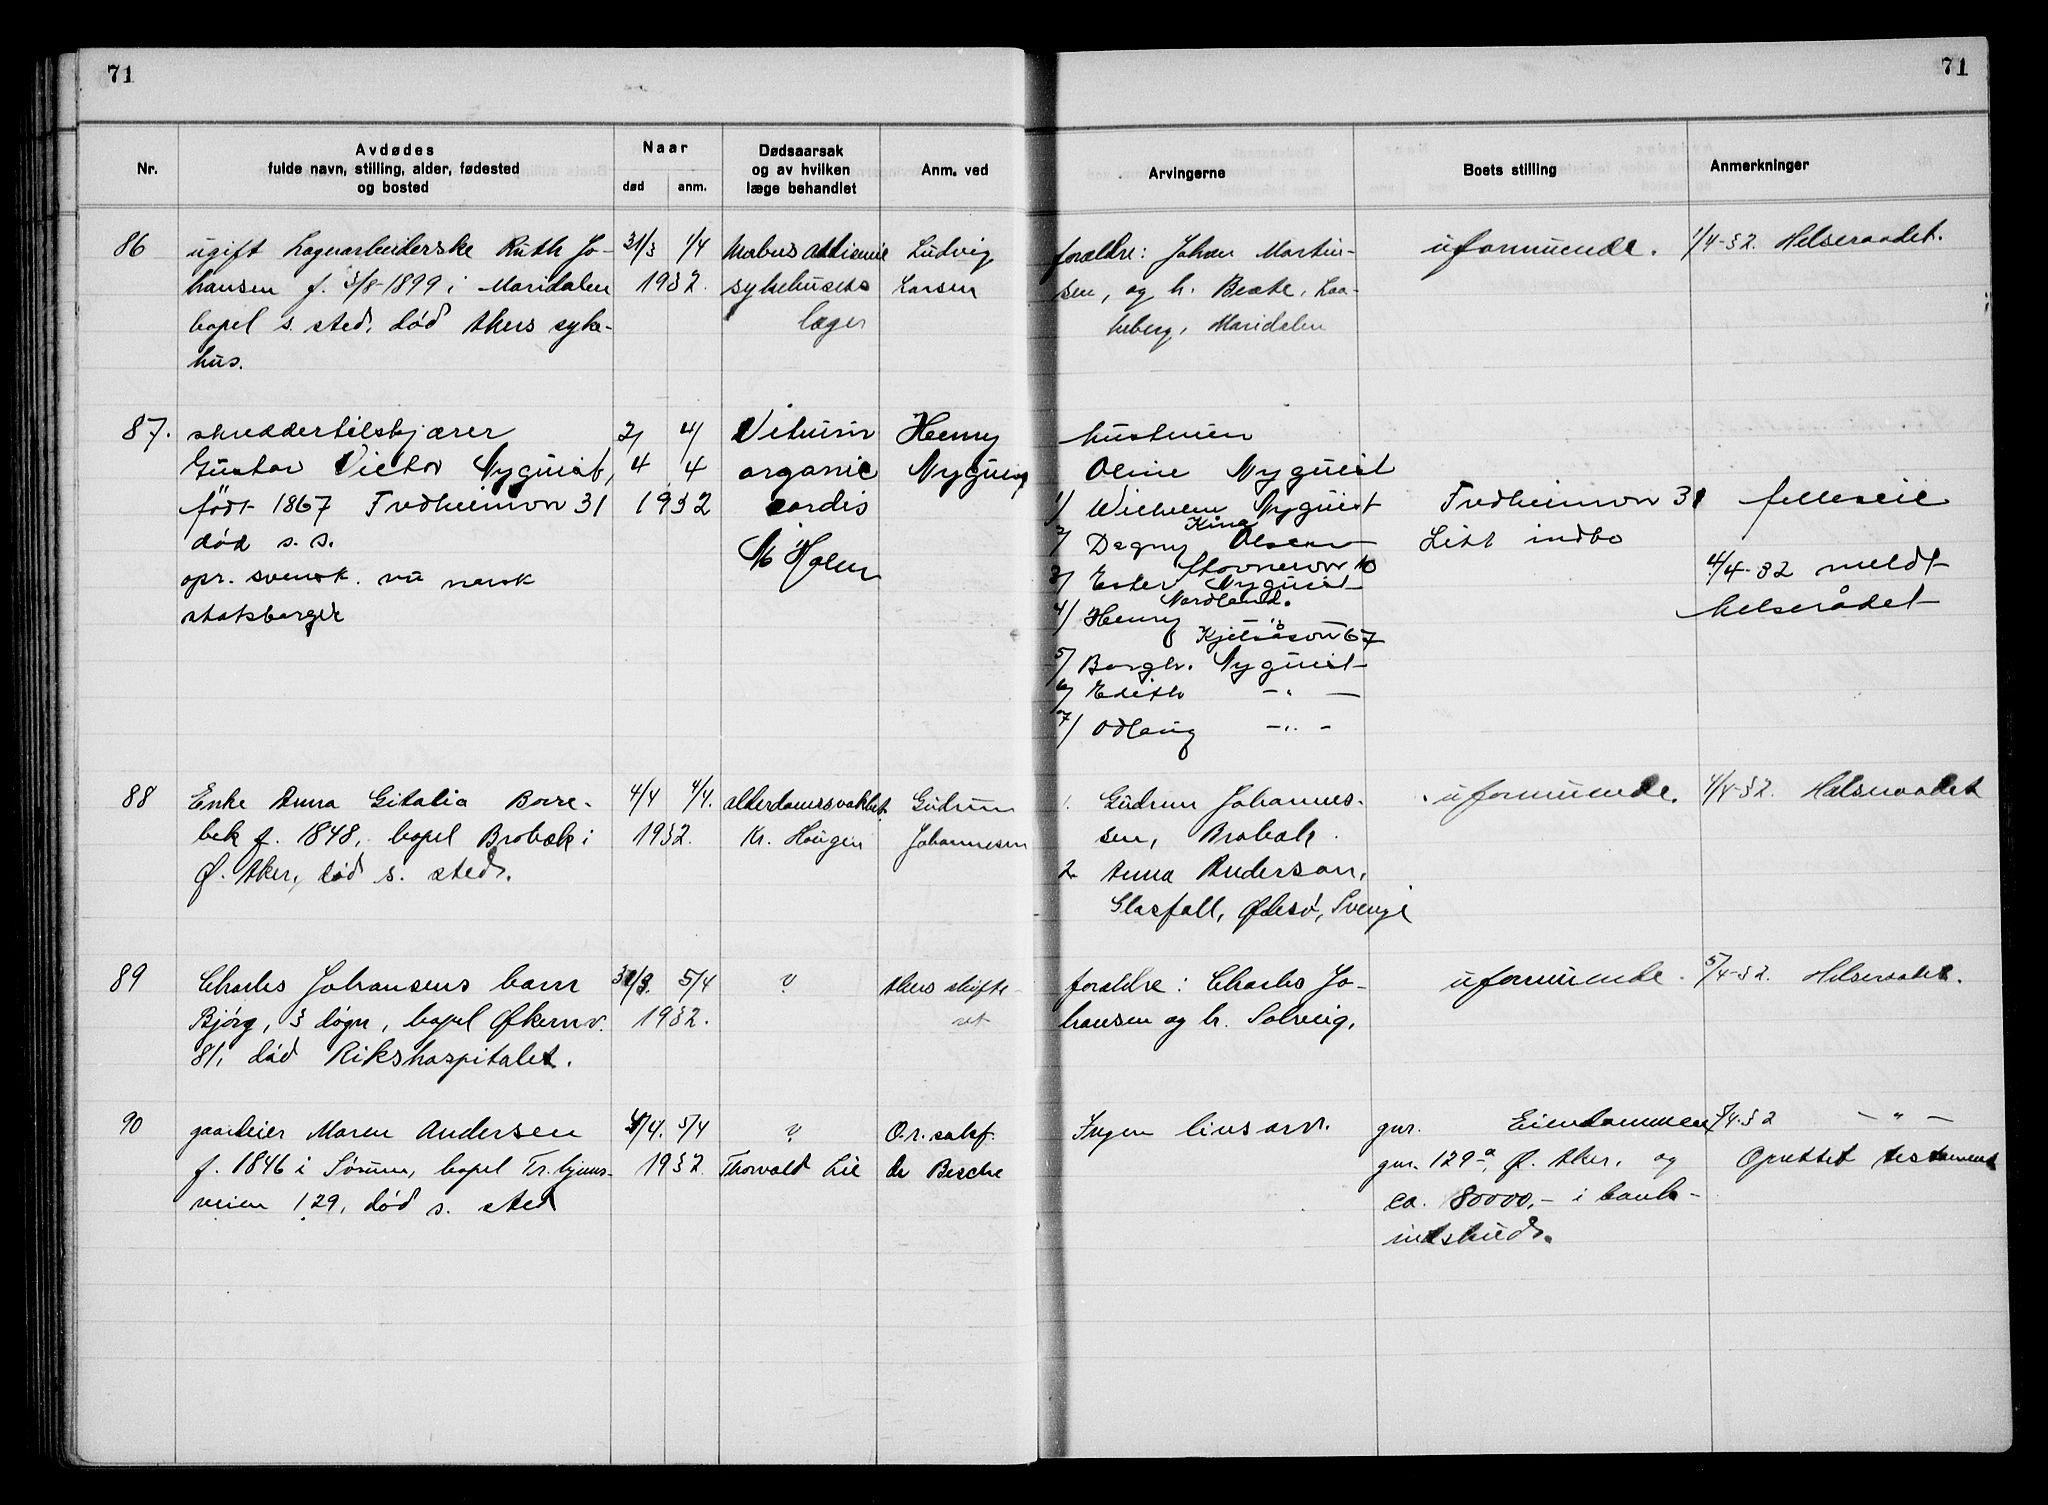 71
71
Nr.
Avdødes
fulde navn, stilling, alder, fødested
og bosted
Naar
død
anm.
Dødsaarsak
og av hvilken
læge behandlet
Anm. ved
Arvingerne
Boets stilling
Anmerkninger
86
ugift Lagerarbeiderske Ruth Jo-
hansen f. 3/8-1899 i Maridalen
bopel s. sted, død Akers syke-
hus.
31/3 1/4
1932.
Morbus addisonie
sykehusets
læger
Ludvig
Larsen
forældre: Johan Martin-
sen, og h. Beate,
Maridalen
uformuende.
1/4-32. Helseraadet.
87.
skreddertilskjærer
Gustav Victor Nyquist,
født 1867 Trudheimvn 31
død s. s.
opr. svensk. nu norsk
statsborger
2/ 4/
4 4
1932
Vitium
organic
cordis
Holm
Henny
Nyquist
hustruen
Oline Nyquist
1/ Wilhelm Nyquist
Kina
2/ Dagny Olsen
Stovnervn 10
3/ Ester Nyquist
Nordland.
4/ Henny "
Kjelsåsvn 67
5/ Borgh. Nyquist
6/ Edith - " -
7/ Odlaug - " -
Trudheimvn 31
Litt indbo
felleseie
4/4-32 meldt
helserådet
88
Enke Anna Gitalia Borre-
bek f. 1848, bopel Brobæk i
Ø. Aker, død s. sted.
4/4 4/4.
1932.
alderdomssvakhet.
Kr. Haugen
Gudrun
Johannesen
1. Gudrun Johannes-
sen, Brobæk.
2 Anna Anderson,
Glasfall, Ødesø, Sverige
uformuende.
4/4-32. Helseraadet
89
Charles Johansens barn
Bjørg, 3 døgn, bopel Økernv.
81, død Rikshospitalet.
31/3. 5/4
1932.
?
Akers skifte-
ret
forældre: Charles Jo-
hansen og h. Solveig.
uformuende.
5/4-32. Helseraadet.
90
gaardeier Maren Andersen
f. 1846 i Sørum, bopel Tr.hjems-
veien 129, død s. sted
4/4. 5/4
1932.
?
Thorvald Lie
O.r. sakf.
de Besche
Ingen livsarv.
gnr. Eiendommen
gnr. 129 a, Ø. Aker, og
ca. 80000,- i bank-
indskudd.
5/4-32 - " -
Oprettet testament